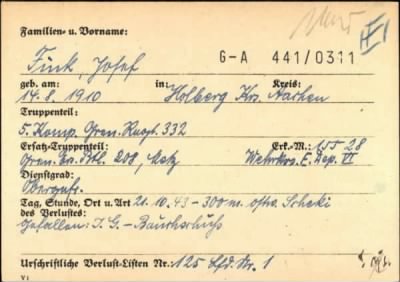 Familien- u. Vorname:
Fink, Josef
G-A 441/0311
geb. am: in: Kreis:
14.8.1910 Holberg Krs. Aachen
Truppenteil:
5. Komp. Gren. Regt. 332
Ersatz-Truppenteil: Erk.-M.: 155 28
Gren. Ers. Btl. 208, Metz Wehrkrs. E. Dep. VI
Dienstgrad:
Obergefr.
Tag, Stunde, Ort u. Art 21.10.43 - 300 m ostw. Scheki
des Verlustes:
Gefallen: I.G.-Bauchschuß
Urschriftliche Verlust-Listen Nr.: 125 Lfd. Nr. 1
V1